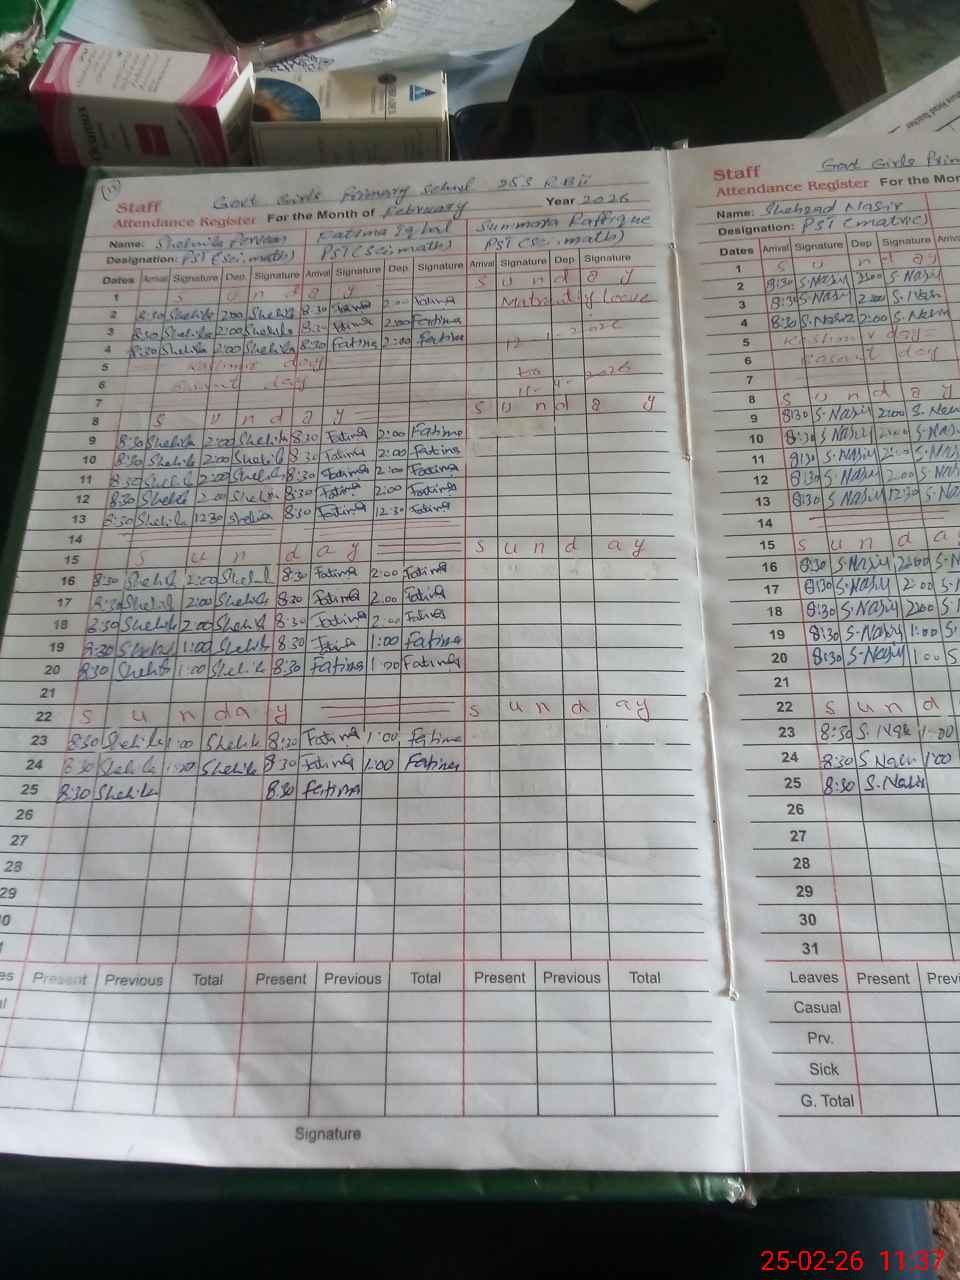 Govt Girls Primary School 253 R.B II
Staff
Attendance Register For the Month of February Year 2026
Name: Shehnila Perveen Fatima Iqbal Summora Raffique
Designation: PST (Sci.math) PST (Sci math) PST (Sci.math)
Dates Arrival Signature Dep. Signature Arrival Signature Dep. Signature Arrival Signature Dep. Signature
1 S u n d a y S u n d a y
2 8:30 Shehila 2:00 Shehila 8:30 Fatima 2:00 Fatima Maternity leave
3 8:30 Shehila 2:00 Shehila 8:30 Fatima 2:00 Fatima
4 8:30 Shehila 2:00 Shehila 8:30 Fatima 2:00 Fatima
5 Kashmir day
6 Basant day to 2026
7
8 S u n d a y S u n d a y
9 8:30 Shehila 2:00 Shehila 8:30 Fatima 2:00 Fatima
10 8:30 Shehila 2:00 Shehila 8:30 Fatima 2:00 Fatima
11 8:30 Shehila 2:00 Shehila 8:30 Fatima 2:00 Fatima
12 8:30 Shehila 2:00 Shehila 8:30 Fatima 2:00 Fatima
13 8:30 Shehila 12:30 Shehila 8:30 Fatima 12:30 Fatima
14
15 S u n d a y S u n d a y
16 8:30 Shehila 2:00 Shehila 8:30 Fatima 2:00 Fatima
17 8:30 Shehila 2:00 Shehila 8:30 Fatima 2:00 Fatima
18 8:30 Shehila 2:00 Shehila 8:30 Fatima 2:00 Fatima
19 8:30 Shehila 1:00 Shehila 8:30 Fatima 1:00 Fatima
20 8:30 Shehila 1:00 Shehila 8:30 Fatima 1:00 Fatima
21
22 S u n d a y S u n d a y
23 8:30 Shehila 1:00 Shehila 8:30 Fatima 1:00 Fatima
24 8:30 Shehila 1:00 Shehila 8:30 Fatima 1:00 Fatima
25 8:30 Shehila 8:30 Fatima
26
27
28
29
Present Previous Total Present Previous Total Present Previous Total
Signature
Govt Girls
Staff
Attendance Register For the
Name: Shehzad Nasir
Designation: PST (matric)
Dates Arrival Signature Dep Signature
1 S u n d a y
2 8:30 S.Nasir 2:00 S.Nasir
3 8:30 S.Nasir 2:00 S.Nasir
4 8:30 S.Nasir 2:00 S.Nasir
5 Kashmir day
6 Basant day
7
8 S u n d a y
9 8:30 S.Nasir 2:00
10 8:30 S.Nasir 2:00
11 8:30 S.Nasir 2:00
12 8:30 S.Nasir 2:00
13 8:30 S.Nasir 12:30
14
15 S u n d a
16 8:30 S.Nasir 2:00
17 8:30 S.Nasir 2:00
18 8:30 S.Nasir 2:00
19 8:30 S.Nasir 1:00
20 8:30 S.Nasir 1:00
21
22 S u n d
23 8:30 1:00
24 8:30 S.Nasir 1:00
25 8:30 S.Nasir
26
27
28
29
30
31
Leaves Present
Casual
Prv.
Sick
G. Total
25-02-26 11:37